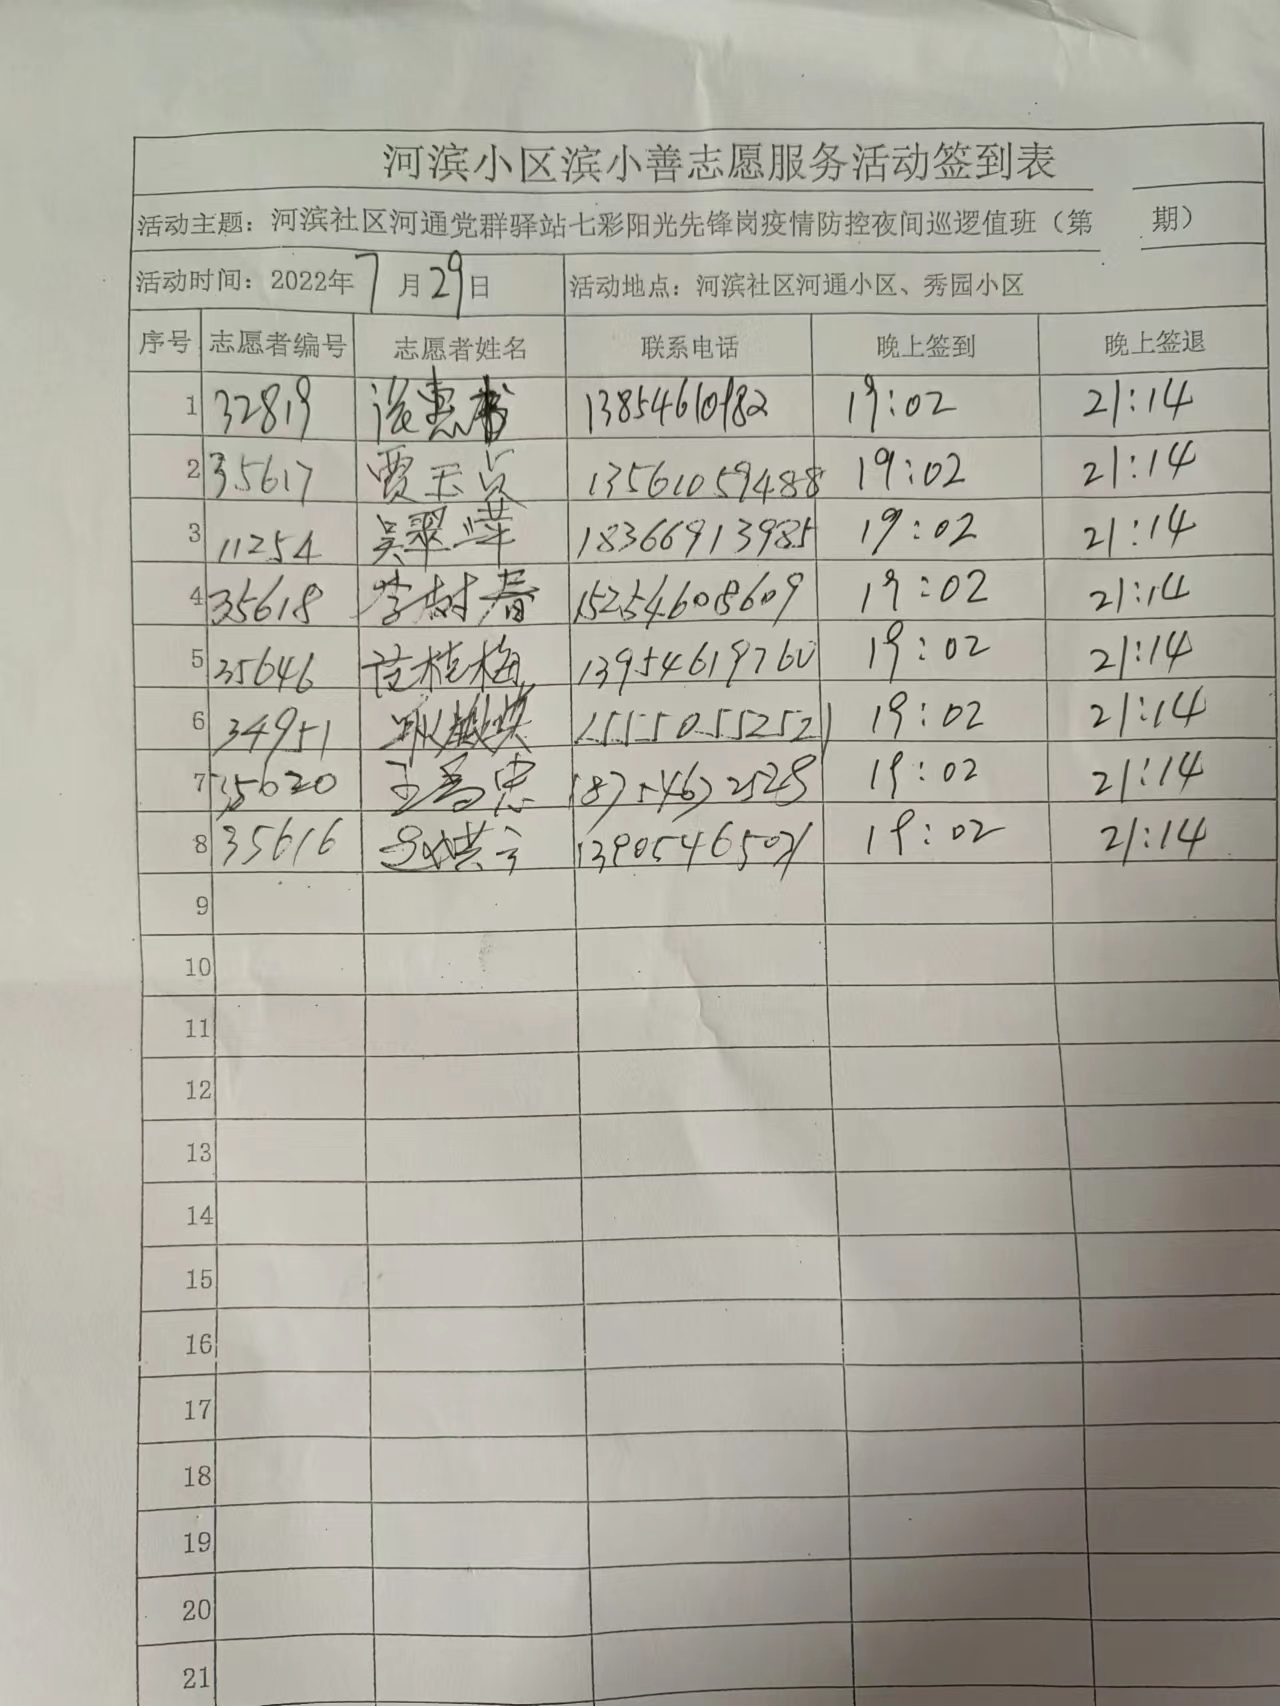 河滨小区滨小善志愿服务活动签到表
活动主题：河滨社区河通党群驿站七彩阳光先锋岗疫情防控夜间巡逻值班（第 期）
活动时间：2022年7月29日 活动地点：河滨社区河通小区、秀园小区
序号 志愿者编号 志愿者姓名 联系电话 晚上签到 晚上签退
1 32819 13854610982 19:02 21:14
2 35617 贾玉贞 13561059488 19:02 21:14
3 11254 吴翠萍 18366913985 19:02 21:14
4 35618 李树春 15254608609 19:02 21:14
5 35646 范桂梅 13954619760 19:02 21:14
6 34951 15550552521 19:02 21:14
7 35620 18754672528 19:02 21:14
8 35616 19:02 21:14
9
10
11
12
13
14
15
16
17
18
19
20
21